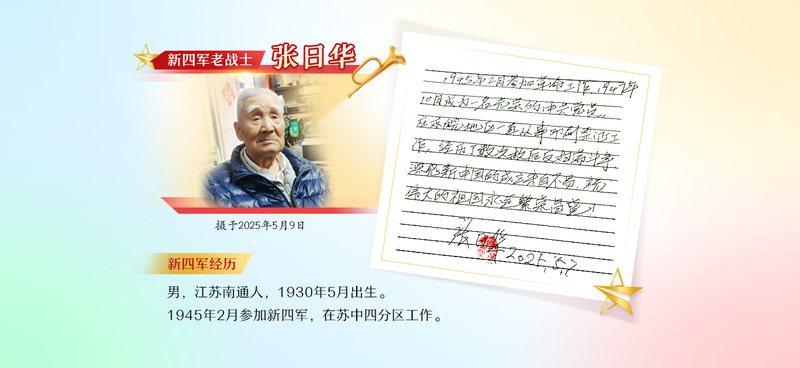 新四军老战士 张日华
摄于2025年5月9日
新四军经历
男，江苏南通人，1930年5月出生。
1945年2月参加新四军，在苏中四分区工作。
1945年2月参加革命工作，1947年
10月成为一名光荣的中共党员，
在苏皖地区一直从事
作，经历了数次敌后反扫荡斗争
新中国的成立来自不易，祝
伟大的祖国永远繁荣昌盛！
张日华
2025.5.7